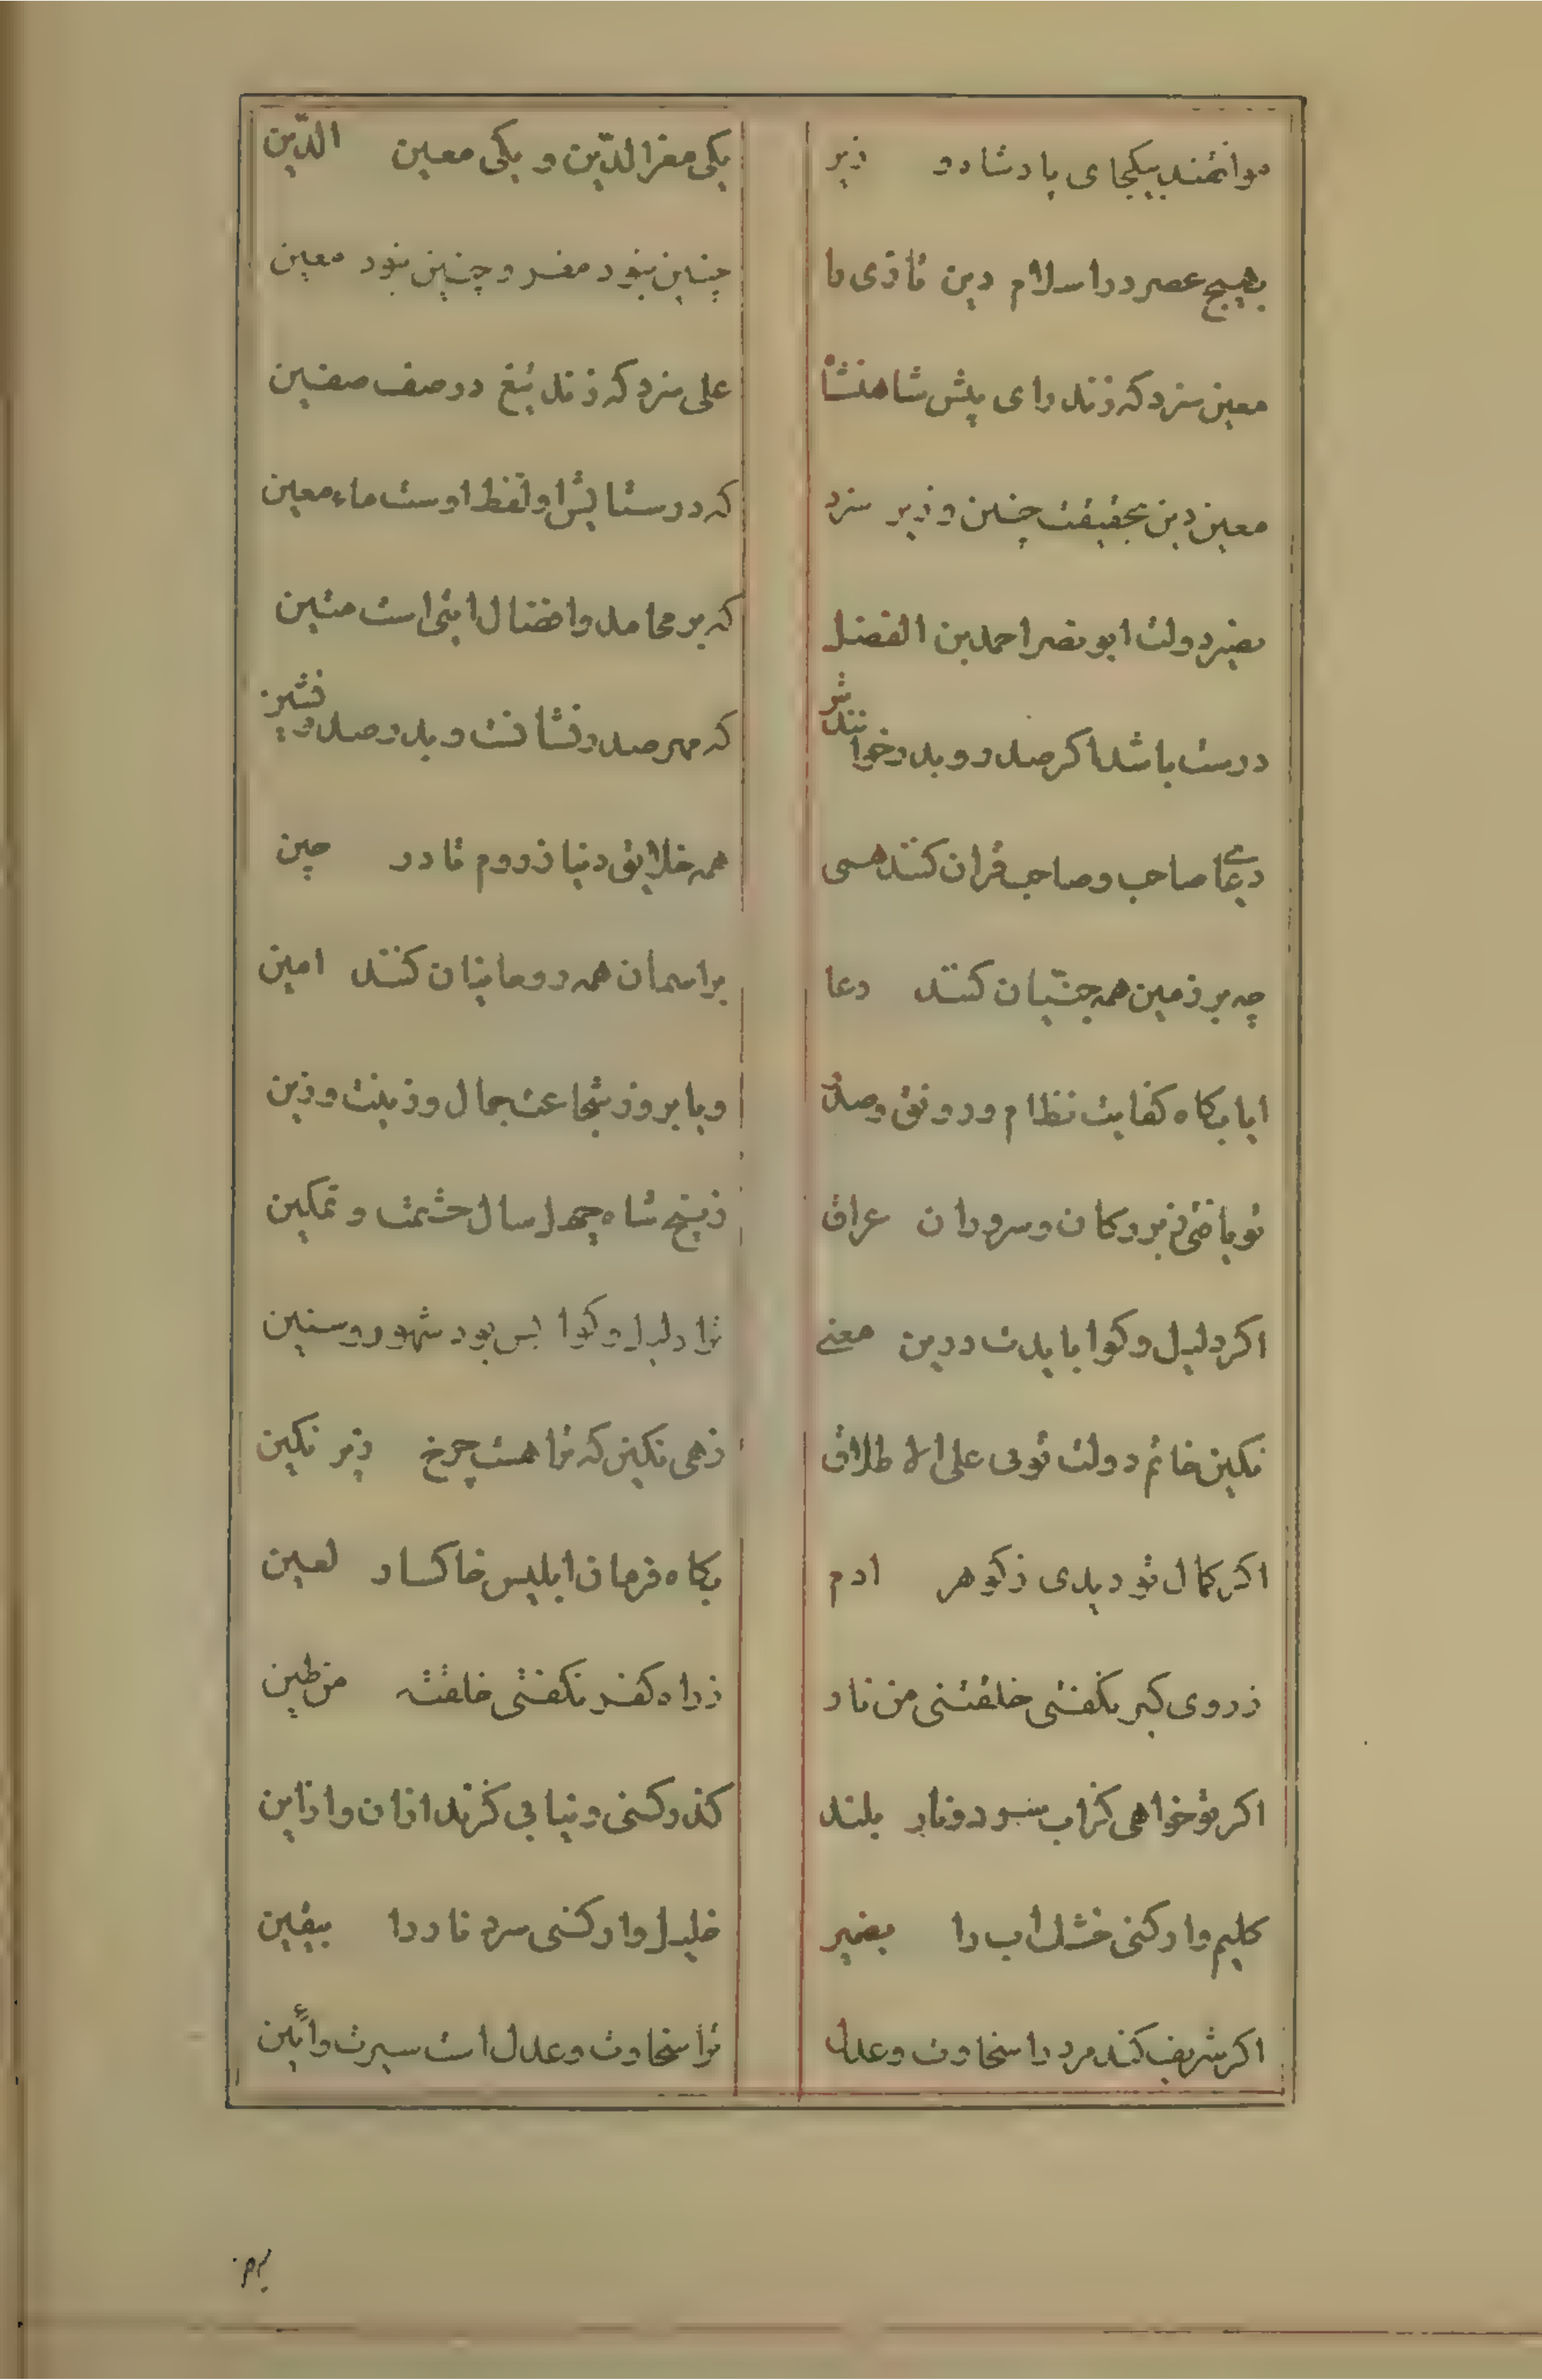 موافقند بیکجای پادشا و وزیر یکی معزالدّین و یکی معین الدّین
بهیچ عصر در اسلام دین تازی را چنین نبود معز و چنین نبود معین
معین سزد که زند رای پیش شاهنشاه علی سزد که زند تیغ در صف صفین
معین دین بحقیقت چنین وزیر سزد که در ستایش او لفظ اوست ماء معین
نصیر دولت ابو نصر احمد بن الفضل که بر محامد و افضال اینی است متین
درست باشد اکر صدر و بدر خوانندش که مهر صدر فشانست و بدر صدر نشین
دعای صاحب و صاحب قران کنند همی همه خلایق دنیا ز روم تا در چین
چه بر زمین همه جنّیان کنند دعا بر اسمان همه روحانیان کنند امین
ایا بکاه کفایت نظام و رونق و صدر و یا بروز شجاعت جمال و زینت و زین
تو یافتی ز بزرکان و سروران عراق ز پنج شاه چهل سال حشمت و تمکین
اکر دلیل و کوا بایدت درین معنی ترا دلیل و کوا بس بود شهور و سنین
نکین خاتم دولت تویی علی الاطلاق زهی نکین که ترا هست چرخ زیر نکین
اکر کمال تو دیدی ز کوهر ادم بکاه فرمان ابلیس خاکسار لعین
ز روی کبر نکفتی خلقتنی من نار ز راه کفر نکفتی خلقته من طین
اکر تو خواهی کز اب سرد و نار بلند کذر کنی و نیابی کزند ازان و ازاین
کلیم وار کنی خشک اب را بضیر خلیل وار کنی سرد نار را بیقین
اکر شریف کند مرد را سخاوت و عدل ترا سخاوت و عدل است سیرت و ائین